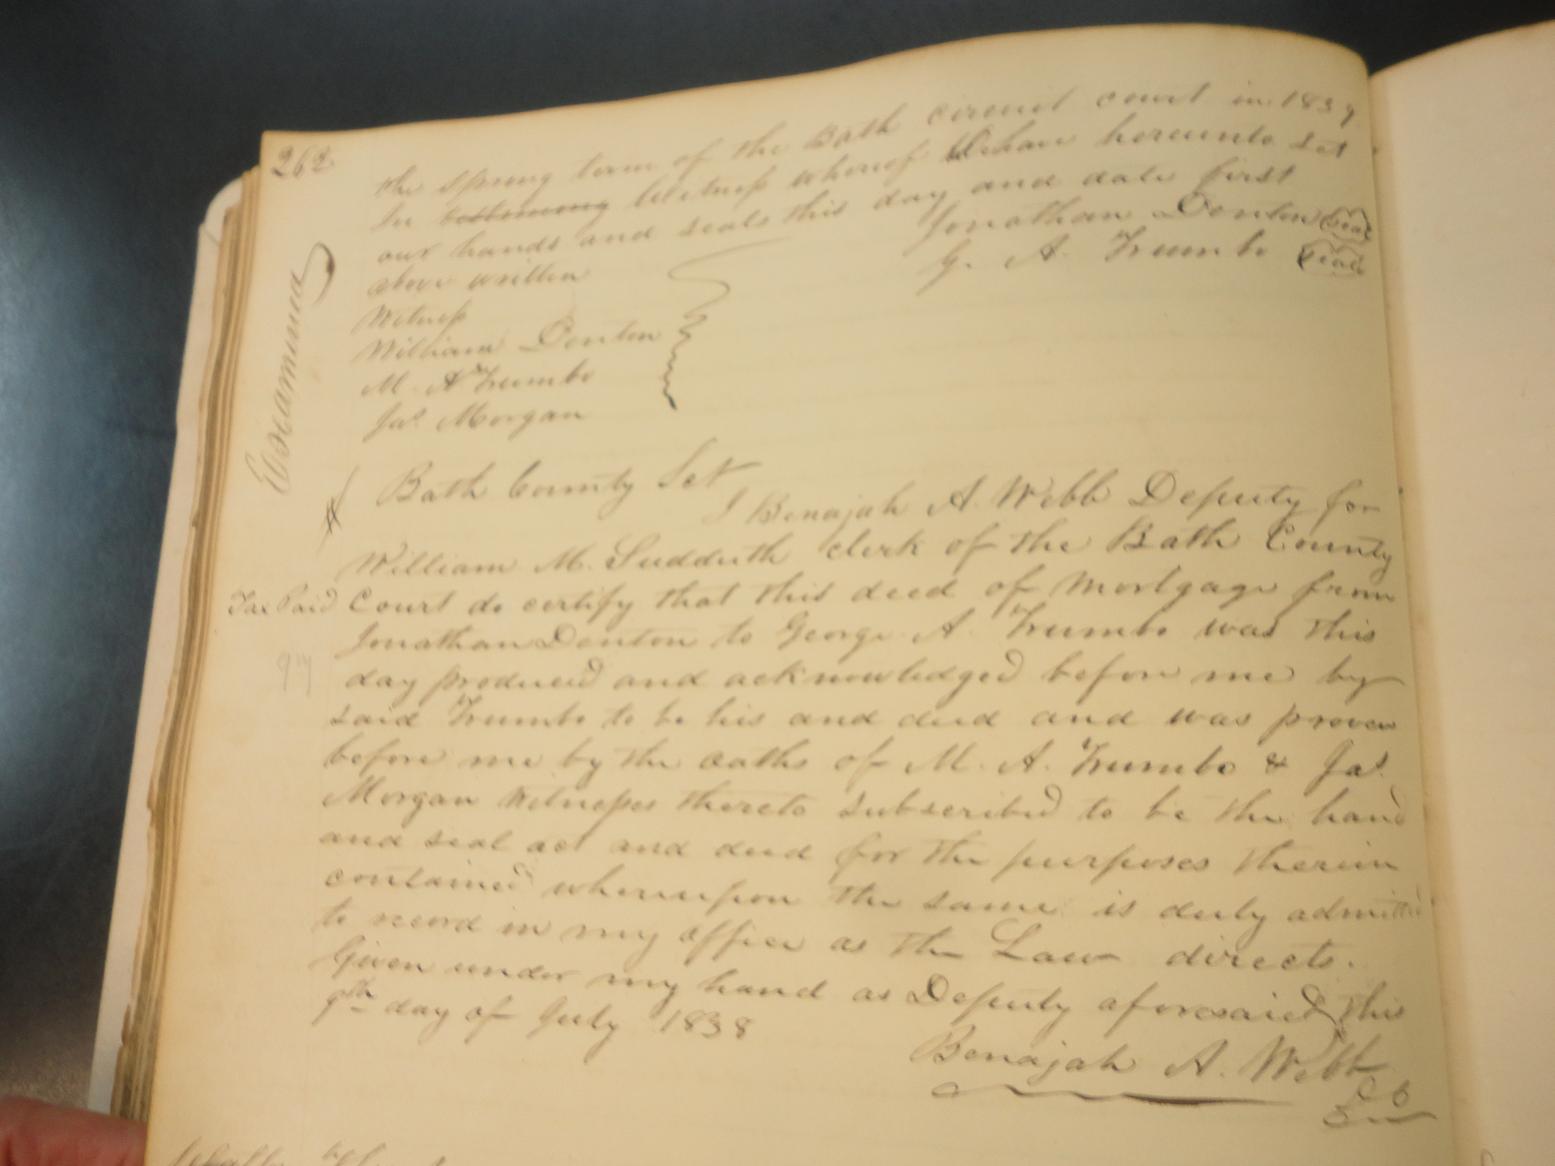 262
the spring term of the Bath circuit court in 1839
In testimony Witness whereof We have hereunto set
our hands and seals this day and date first
above written
Jonathan Denton Seal
G. A. Trumbo Seal
Witness
William Denton
M. A Trumbo
Jas. Morgan
Examined
Bath County Sct
I Benajah A. Webb Deputy for
William M. Sudduth clerk of the Bath County
Tax Paid
Court do certify that this deed of Mortgage from
Jonathan Denton to George A. Trumbo was this
day produced and acknowledged before me by
said Trumbo to be his and deed and was proven
before me by the oaths of M. A. Trumbo & Jas.
Morgan Witnesses thereto subscribed to be the hand
and seal act and deed for the purposes therein
contained whereupon the same is duly admitted
to record in my office as the Law directs.
Given under my hand as Deputy aforesaid this
9th day of July 1838
Benajah A. Webb
D C